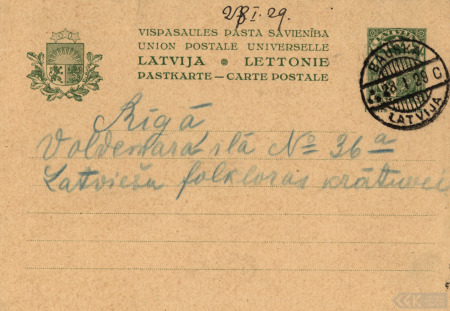 28 I. 29.
VISPASAULES PASTA SAVIENĪBA
UNION POSTALE UNIVERSELLE
LATVIJA * LETTONIE
PASTKARTE – CARTE POSTALE
BAUSKA
28 1 29 C
LATVIJA
Rīgā
Voldemara ielā No 36a
Latviešu folkloras krātuvei